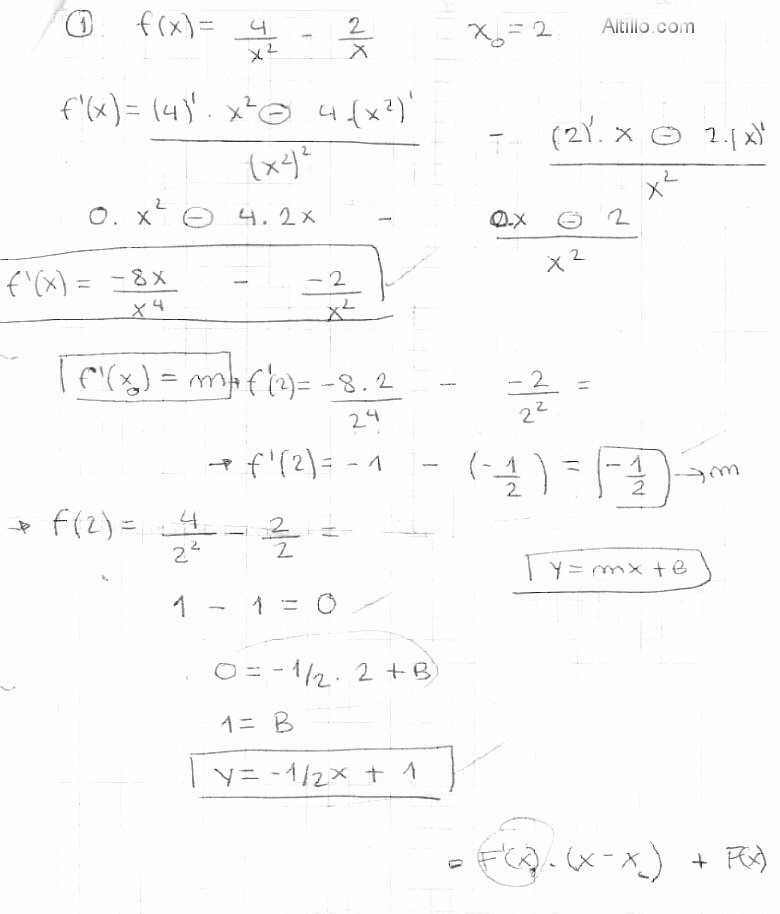 ① f(x) = 4/x² - 2/x x₀ = 2 Altillo.com
f'(x) = ((4)' . x² ⊖ 4.(x²)')/(x²)² - ((2)' . x ⊖ 2.(x)')/x²
0. x² ⊖ 4.2x - (0.x ⊖ 2)/x²
f'(x) = -8x/x⁴ - -2/x²
f'(x₀) = m → f'(2) = -8.2/2⁴ - -2/2² =
→ f'(2) = -1 - (-1/2) = -1/2 → m
→ f(2) = 4/2² - 2/2 =
y = mx + B
1 - 1 = 0
0 = -1/2 . 2 + B
1 = B
y = -1/2x + 1
= F'(x₀) . (x - x₀) + F(x)